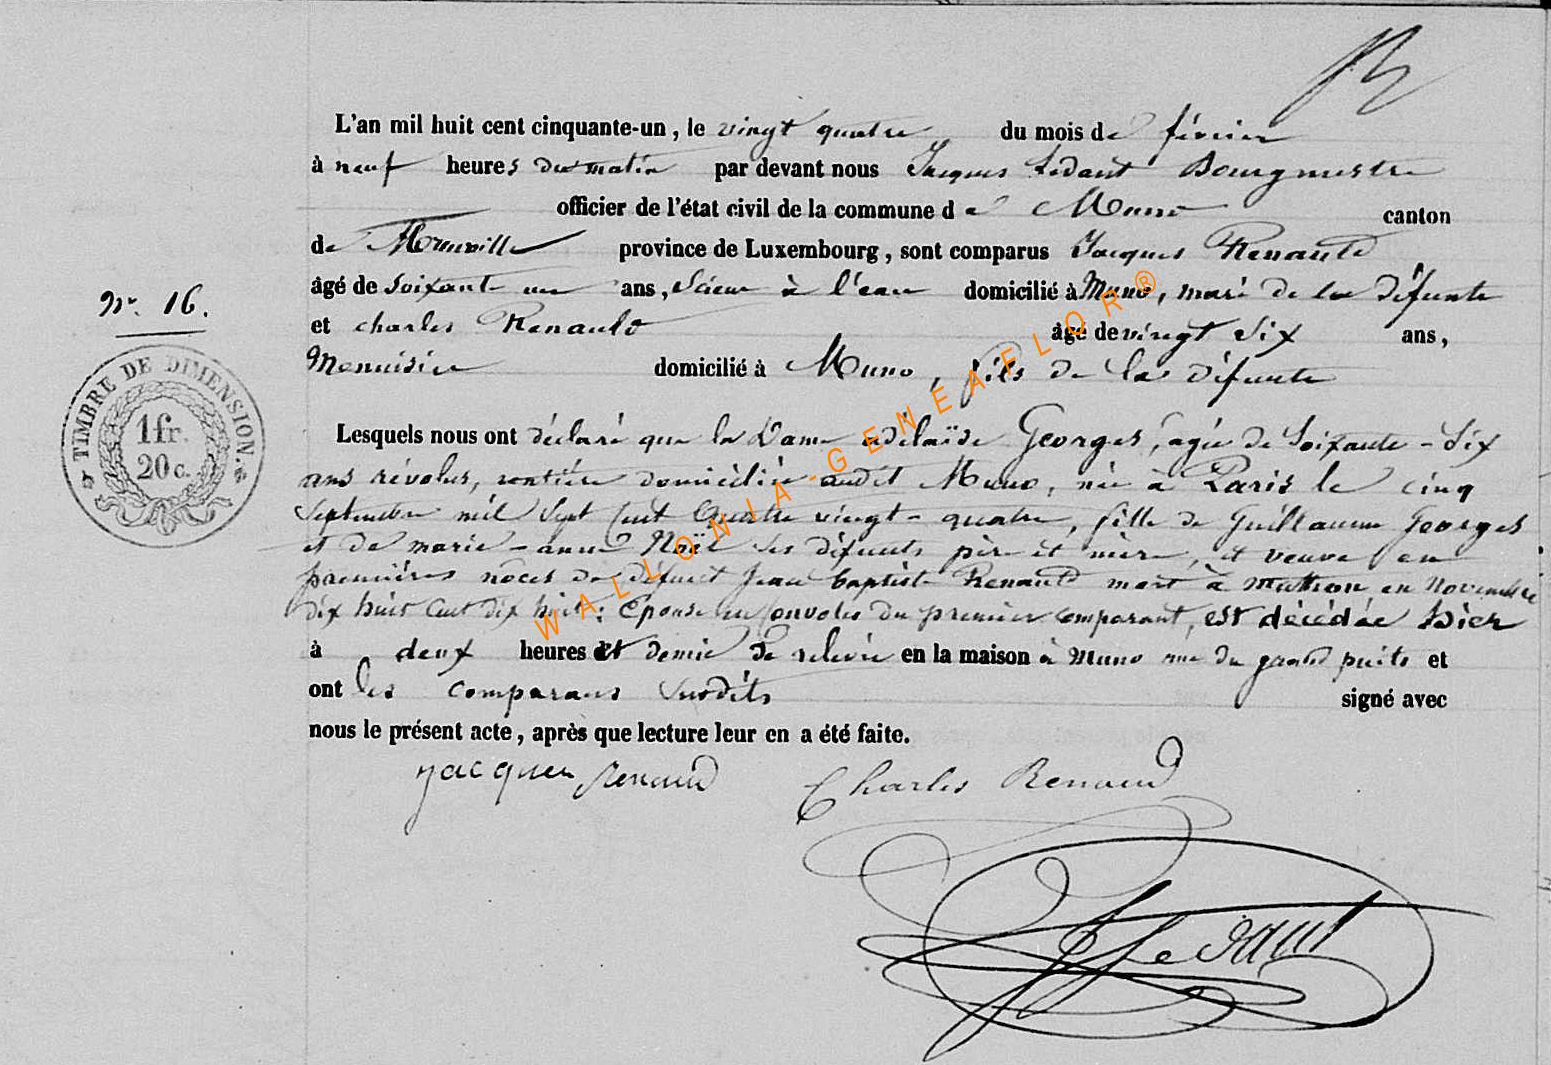 L'an mil huit cent cinquante-un, le vingt quatre du mois de février
à neuf heures du matin par devant nous Jacques Ledant Bourgmestre
officier de l'état civil de la commune de Muno canton
de province de Luxembourg, sont comparus Jacques Renauld
âgé de soixante un ans, scieur à l'eau domicilié à Muno, mari de la défunte
Nr. 16.
et charles Renauld âgé de vingt six ans,
Menuisier domicilié à Muno, fils de la défunte
TIMBRE DE DIMENSION.
1 fr.
20 c.
Lesquels nous ont déclaré que la Dame adélaïde Georges, agée de Soixante-Six
ans révolus, rentière domiciliée audit Muno, née à Paris le cinq
Septembre mil Sept Cent Quatre vingt-quatre, fille de Guillaume Georges
et de marie-anne Noël les défunts père et mère, et veuve en
premières noces de défunt Jean baptiste Renauld mort à Matton en Novembre
dix huit Cent dix huit : Epouse en Convoles du premier comparant, est décédée hier
à deux heures et demie de relevée en la maison à Muno rue du grand puits et
ont les comparans susdits signé avec
nous le présent acte, après que lecture leur en a été faite.
jacques renaud Charles Renaud
Ledant
WALLONIA-GENEAFLOR®